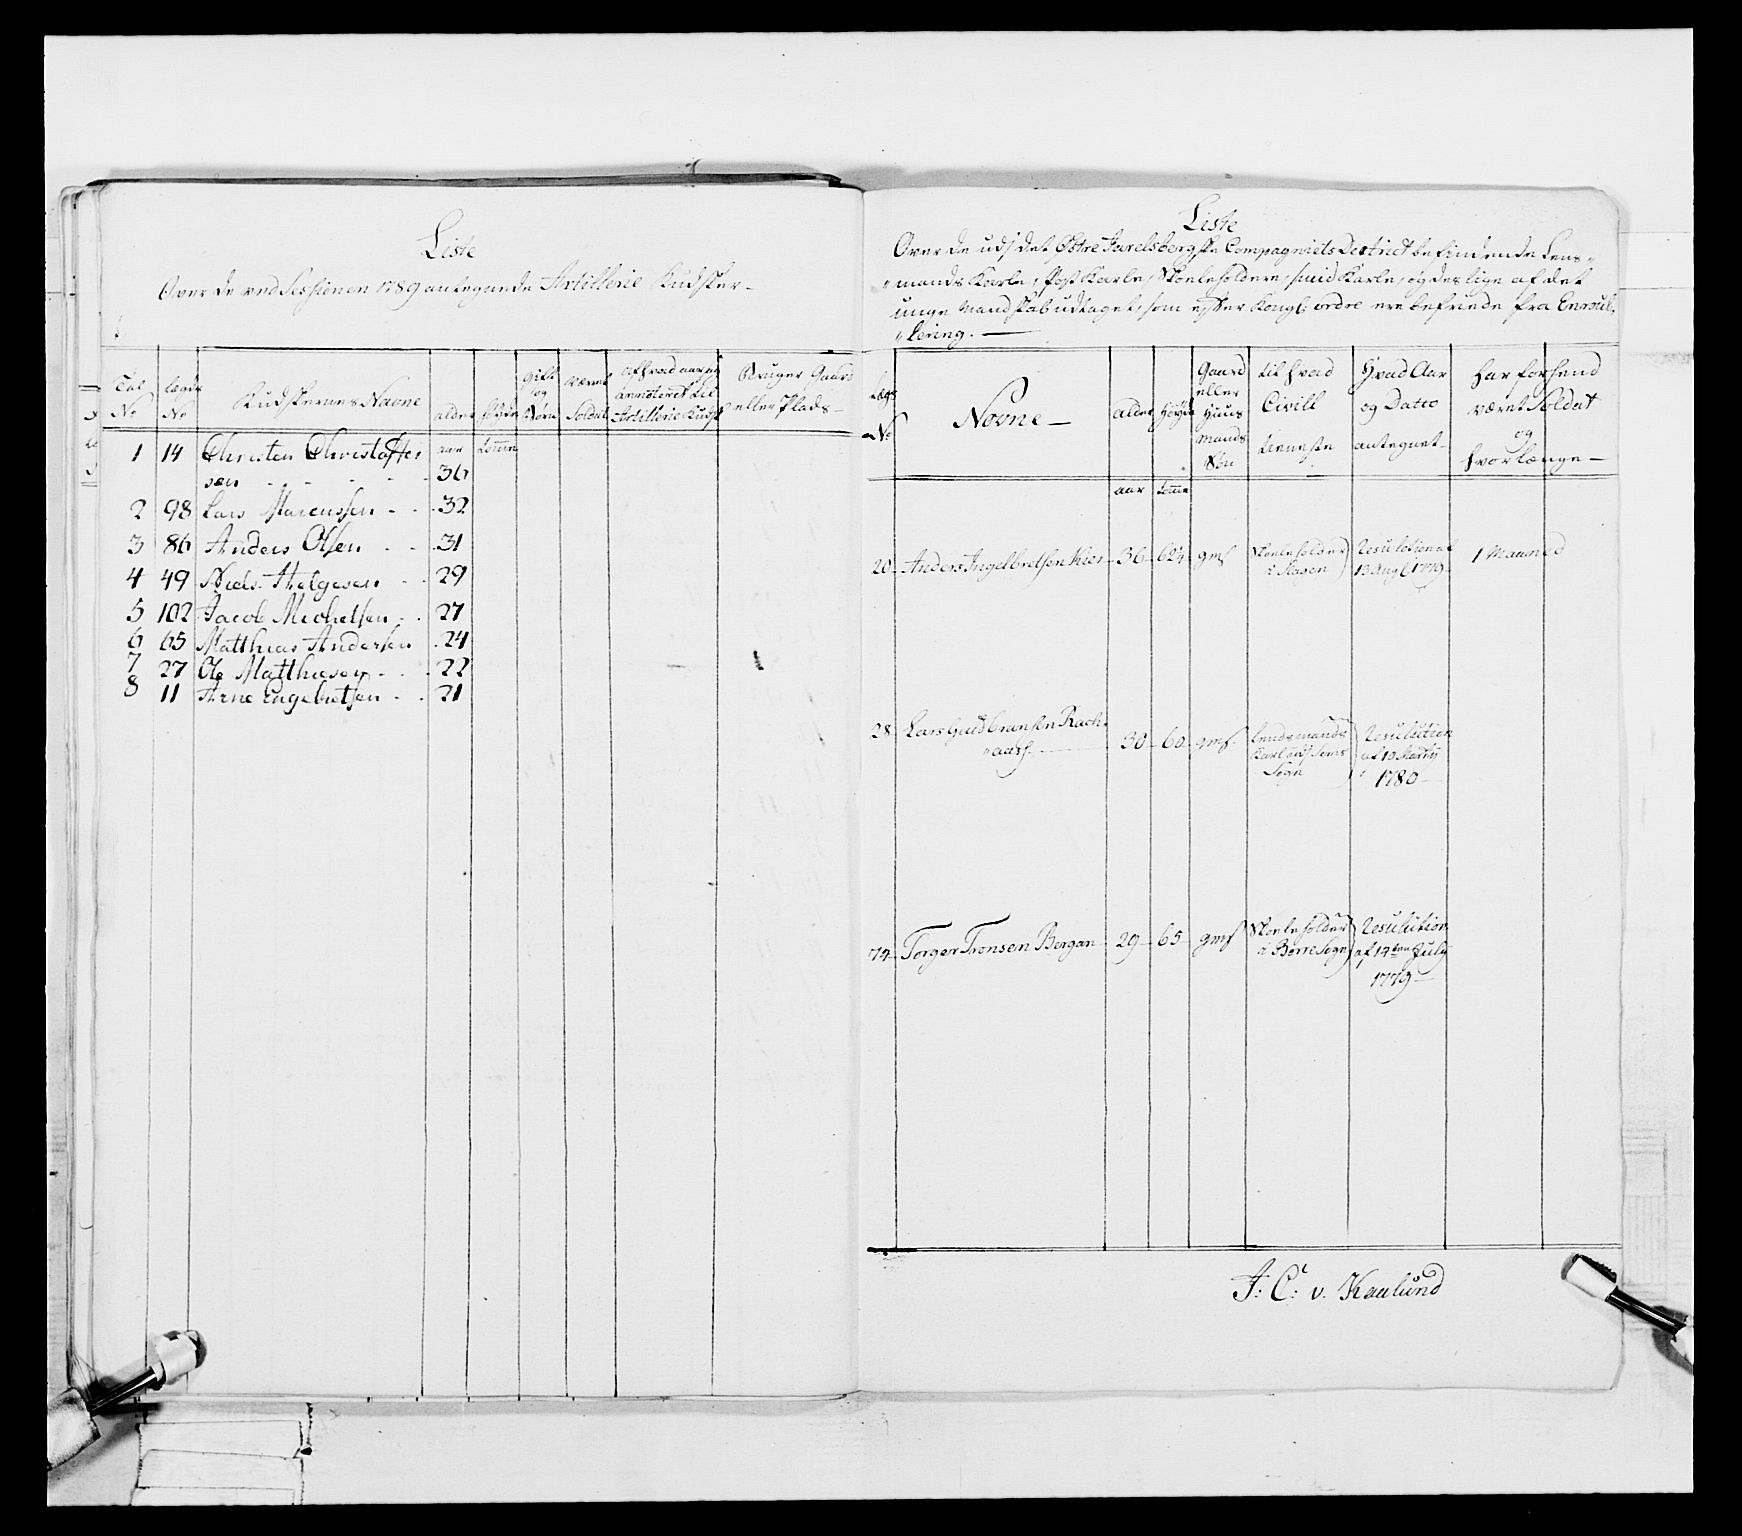 Liste
Over de ved Sessionen 1789 antegnede Artillerie Kudsker
Tal No
Lægds No
Kudskernes Navne
alder
Høyde
Gift og Børn
Været Soldat
af hvad aar og
annoteret til
Artillerie Kudsk
Bruger Gaard
eller Plads
aar
tomme
1 14 Christen Christoffer
sen 36
2 98 Lars 32
3 86 Anders Olsen 31
4 49 Niels Helgesen 29
5 102 Jacob Michelsen 27
6 65 Matthias Andersen 24
7 27 Ole Matthiesen 22
8 11 Arne Engebretsen 21
Liste
Over de udj det Østre Jarelsbergske Compagniets District befindende Lens-
mands Karle, Post Karle, Skoeleholdere, smid Karle, og deslige af det
unge Mandskab udtaget, som efter Kongl: ordre ere befriede fra Enroul-
lering.
Lægs
No
Navne
alder
Høyde
Gaard
eller
Huus
mands
Søn
til hvad
Civill
tieneste
Hvad Aar
og Dato
antegnet
har forhend
været Soldat
og
hvor længe
aar
tomme
20 Anders Ingelbretsen Kier 36 62¼ gms Skoeleholder i Slagen Resulotion af 13 Aug 1779 1 Maaned
28 Lars Gudbransen Rach-
aass 30 60 gms Lendsmands Karl udj Sems Sogn Resulution af 13 Martij 1780
74 Torger Tronsen Bergan 29 65 gms Skoeleholder i Borre Sogn Resulution af 14ten July 1779
J: C: v. Kaalund